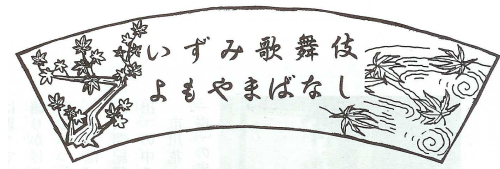 いずみ歌舞伎
よもやまばなし